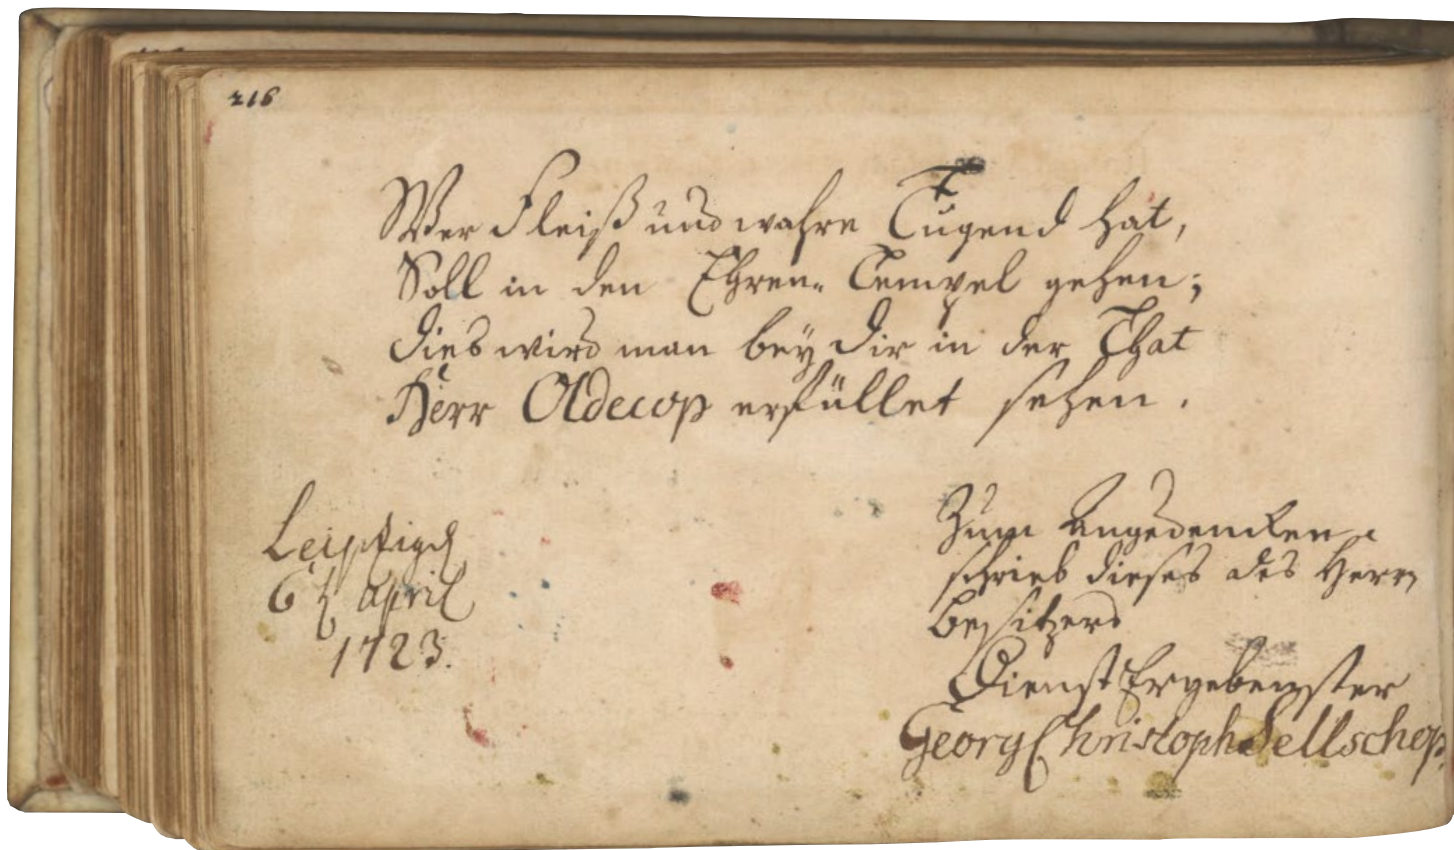 216
Wer Fleiß und wahre Tugend hat,
Soll in den Ehren- Tempel gehen;
Dies wird man bey Dir in der That
Herr Oldecop erfüllet sehen.
Leipzig d
6 April
1723.
Zum Angedencken
schrieb dieses des Herrn
Besitzers
Dienst Ergebenster
Georg Christoph Sellschop.